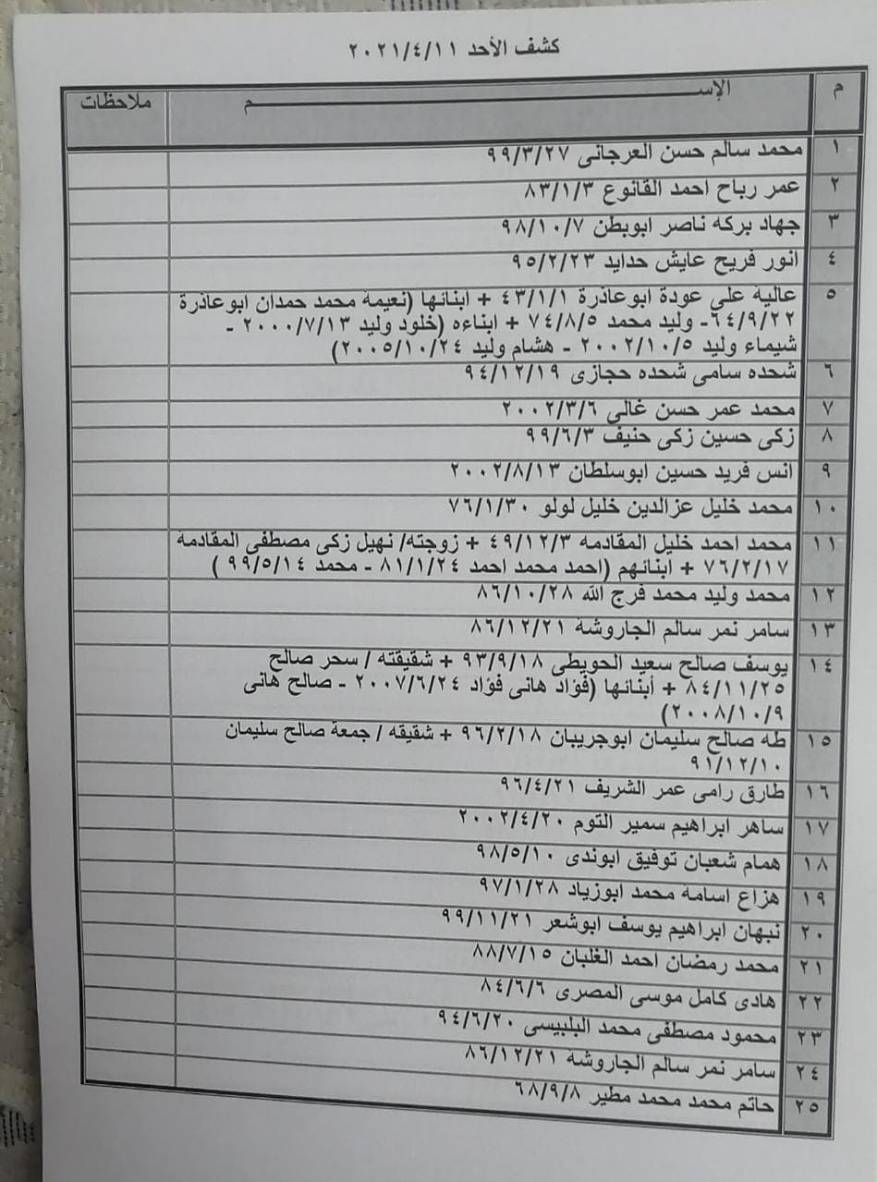 كشف الأحد ٢٠٢١/٤/١١
م الإســــــم ملاحظات
١ محمد سالم حسن العرجانى ٩٩/٣/٢٧
٢ عمر رباح احمد القانوع ٨٣/١/٣
٣ جهاد بركه ناصر ابوبطن ٩٨/١٠/٧
٤ انور فريح عايش حدايد ٩٥/٢/٢٣
٥ عالية على عودة ابوعاذرة ٤٣/١/١ + ابنائها (نعيمة محمد حمدان ابوعاذرة
٦٤/٩/٢٢- وليد محمد ٧٤/٨/٥ + ابناءه (خلود وليد ٢٠٠٠/٧/١٣ -
شيماء وليد ٢٠٠٢/١٠/٥ - هشام وليد ٢٠٠٥/١٠/٢٤)
٦ شحده سامى شحده حجازى ٩٤/١٢/١٩
٧ محمد عمر حسن غالى ٢٠٠٢/٣/٦
٨ زكى حسين زكى حنيف ٩٩/٦/٣
٩ انس فريد حسين ابوسلطان ٢٠٠٢/٨/١٣
١٠ محمد خليل عزالدين خليل لولو ٧٦/١/٣٠
١١ محمد احمد خليل المقادمه ٤٩/١٢/٣ + زوجته/ نهيل زكى مصطفى المقادمة
٧٦/٢/١٧ + ابنائهم (احمد محمد احمد ٨١/١/٢٤ - محمد ٩٩/٥/١٤ )
١٢ محمد وليد محمد فرج الله ٨٦/١٠/٢٨
١٣ سامر نمر سالم الجاروشة ٨٦/١٢/٢١
١٤ يوسف صالح سعيد الحويطى ٩٣/٩/١٨ + شقيقته / سحر صالح
٨٤/١١/٢٥ + أبنائها (فؤاد هانى فؤاد ٢٠٠٧/٦/٢٤ - صالح هانى
٢٠٠٨/١٠/٩)
١٥ طه صالح سليمان ابوجريبان ٩٦/٢/١٨ + شقيقه / جمعة صالح سليمان
٩١/١٢/١٠
١٦ طارق رامى عمر الشريف ٩٦/٤/٢١
١٧ ساهر ابراهيم سمير التوم ٢٠٠٢/٤/٢٠
١٨ همام شعبان توفيق ابوندى ٩٨/٥/١٠
١٩ هزاع اسامه محمد ابوزياد ٩٧/١/٢٨
٢٠ نبهان ابراهيم يوسف ابوشعر ٩٩/١١/٢١
٢١ محمد رمضان احمد الغلبان ٨٨/٧/١٥
٢٢ هادى كامل موسى المصرى ٨٤/٦/٦
٢٣ محمود مصطفى محمد البلبيسى ٩٤/٦/٢٠
٢٤ سامر نمر سالم الجاروشة ٨٦/١٢/٢١
٢٥ حاتم محمد محمد مطير ٦٨/٩/٨